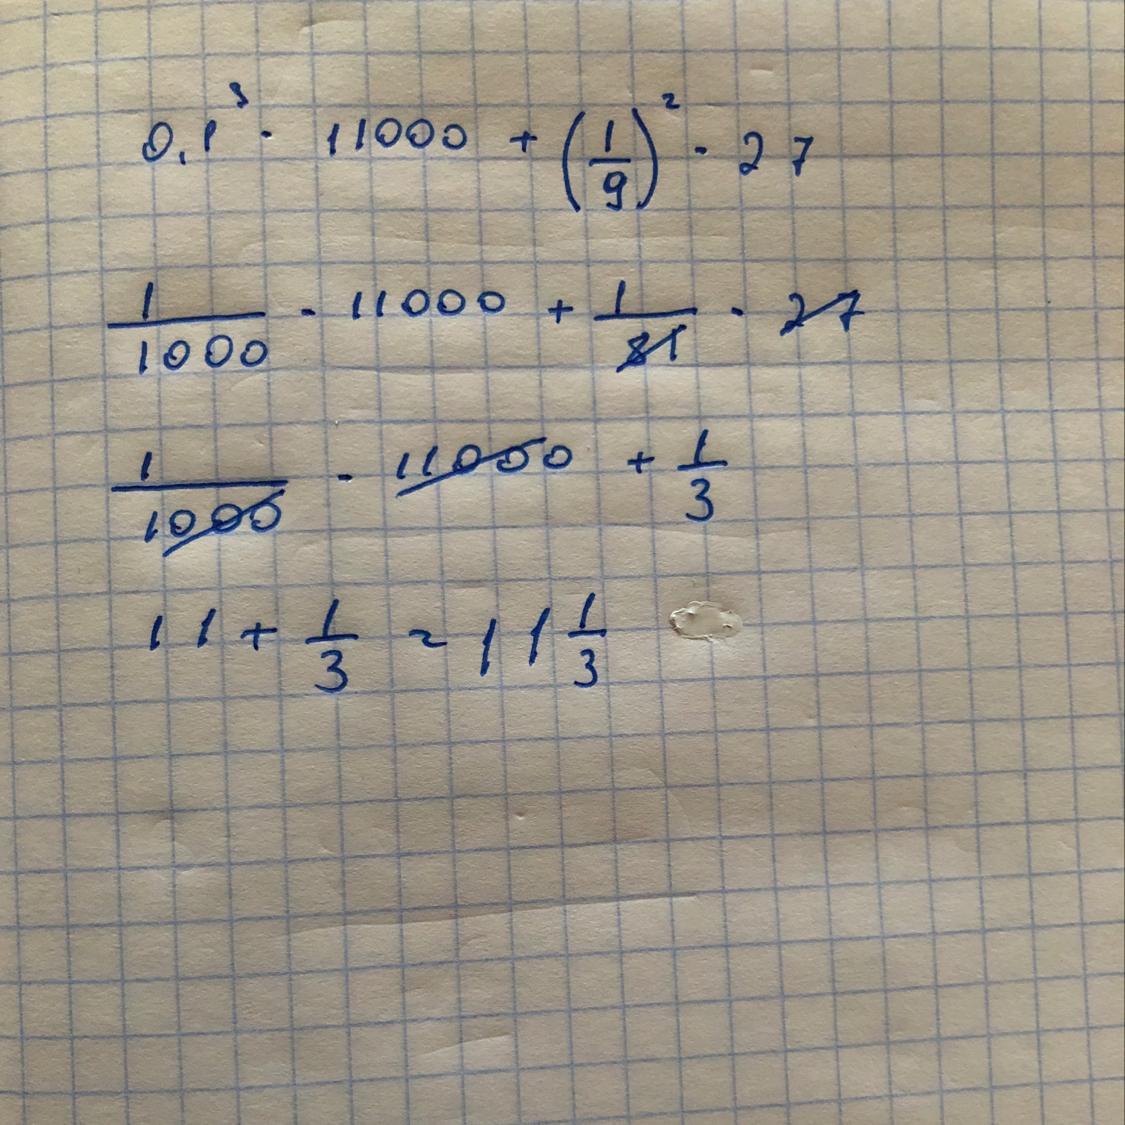 0,1³ · 11000 + (1/9)² · 27
1/1000 · 11000 + 1/81 · 27
1/1000 · 11000 + 1/3
11 + 1/3 = 11 1/3